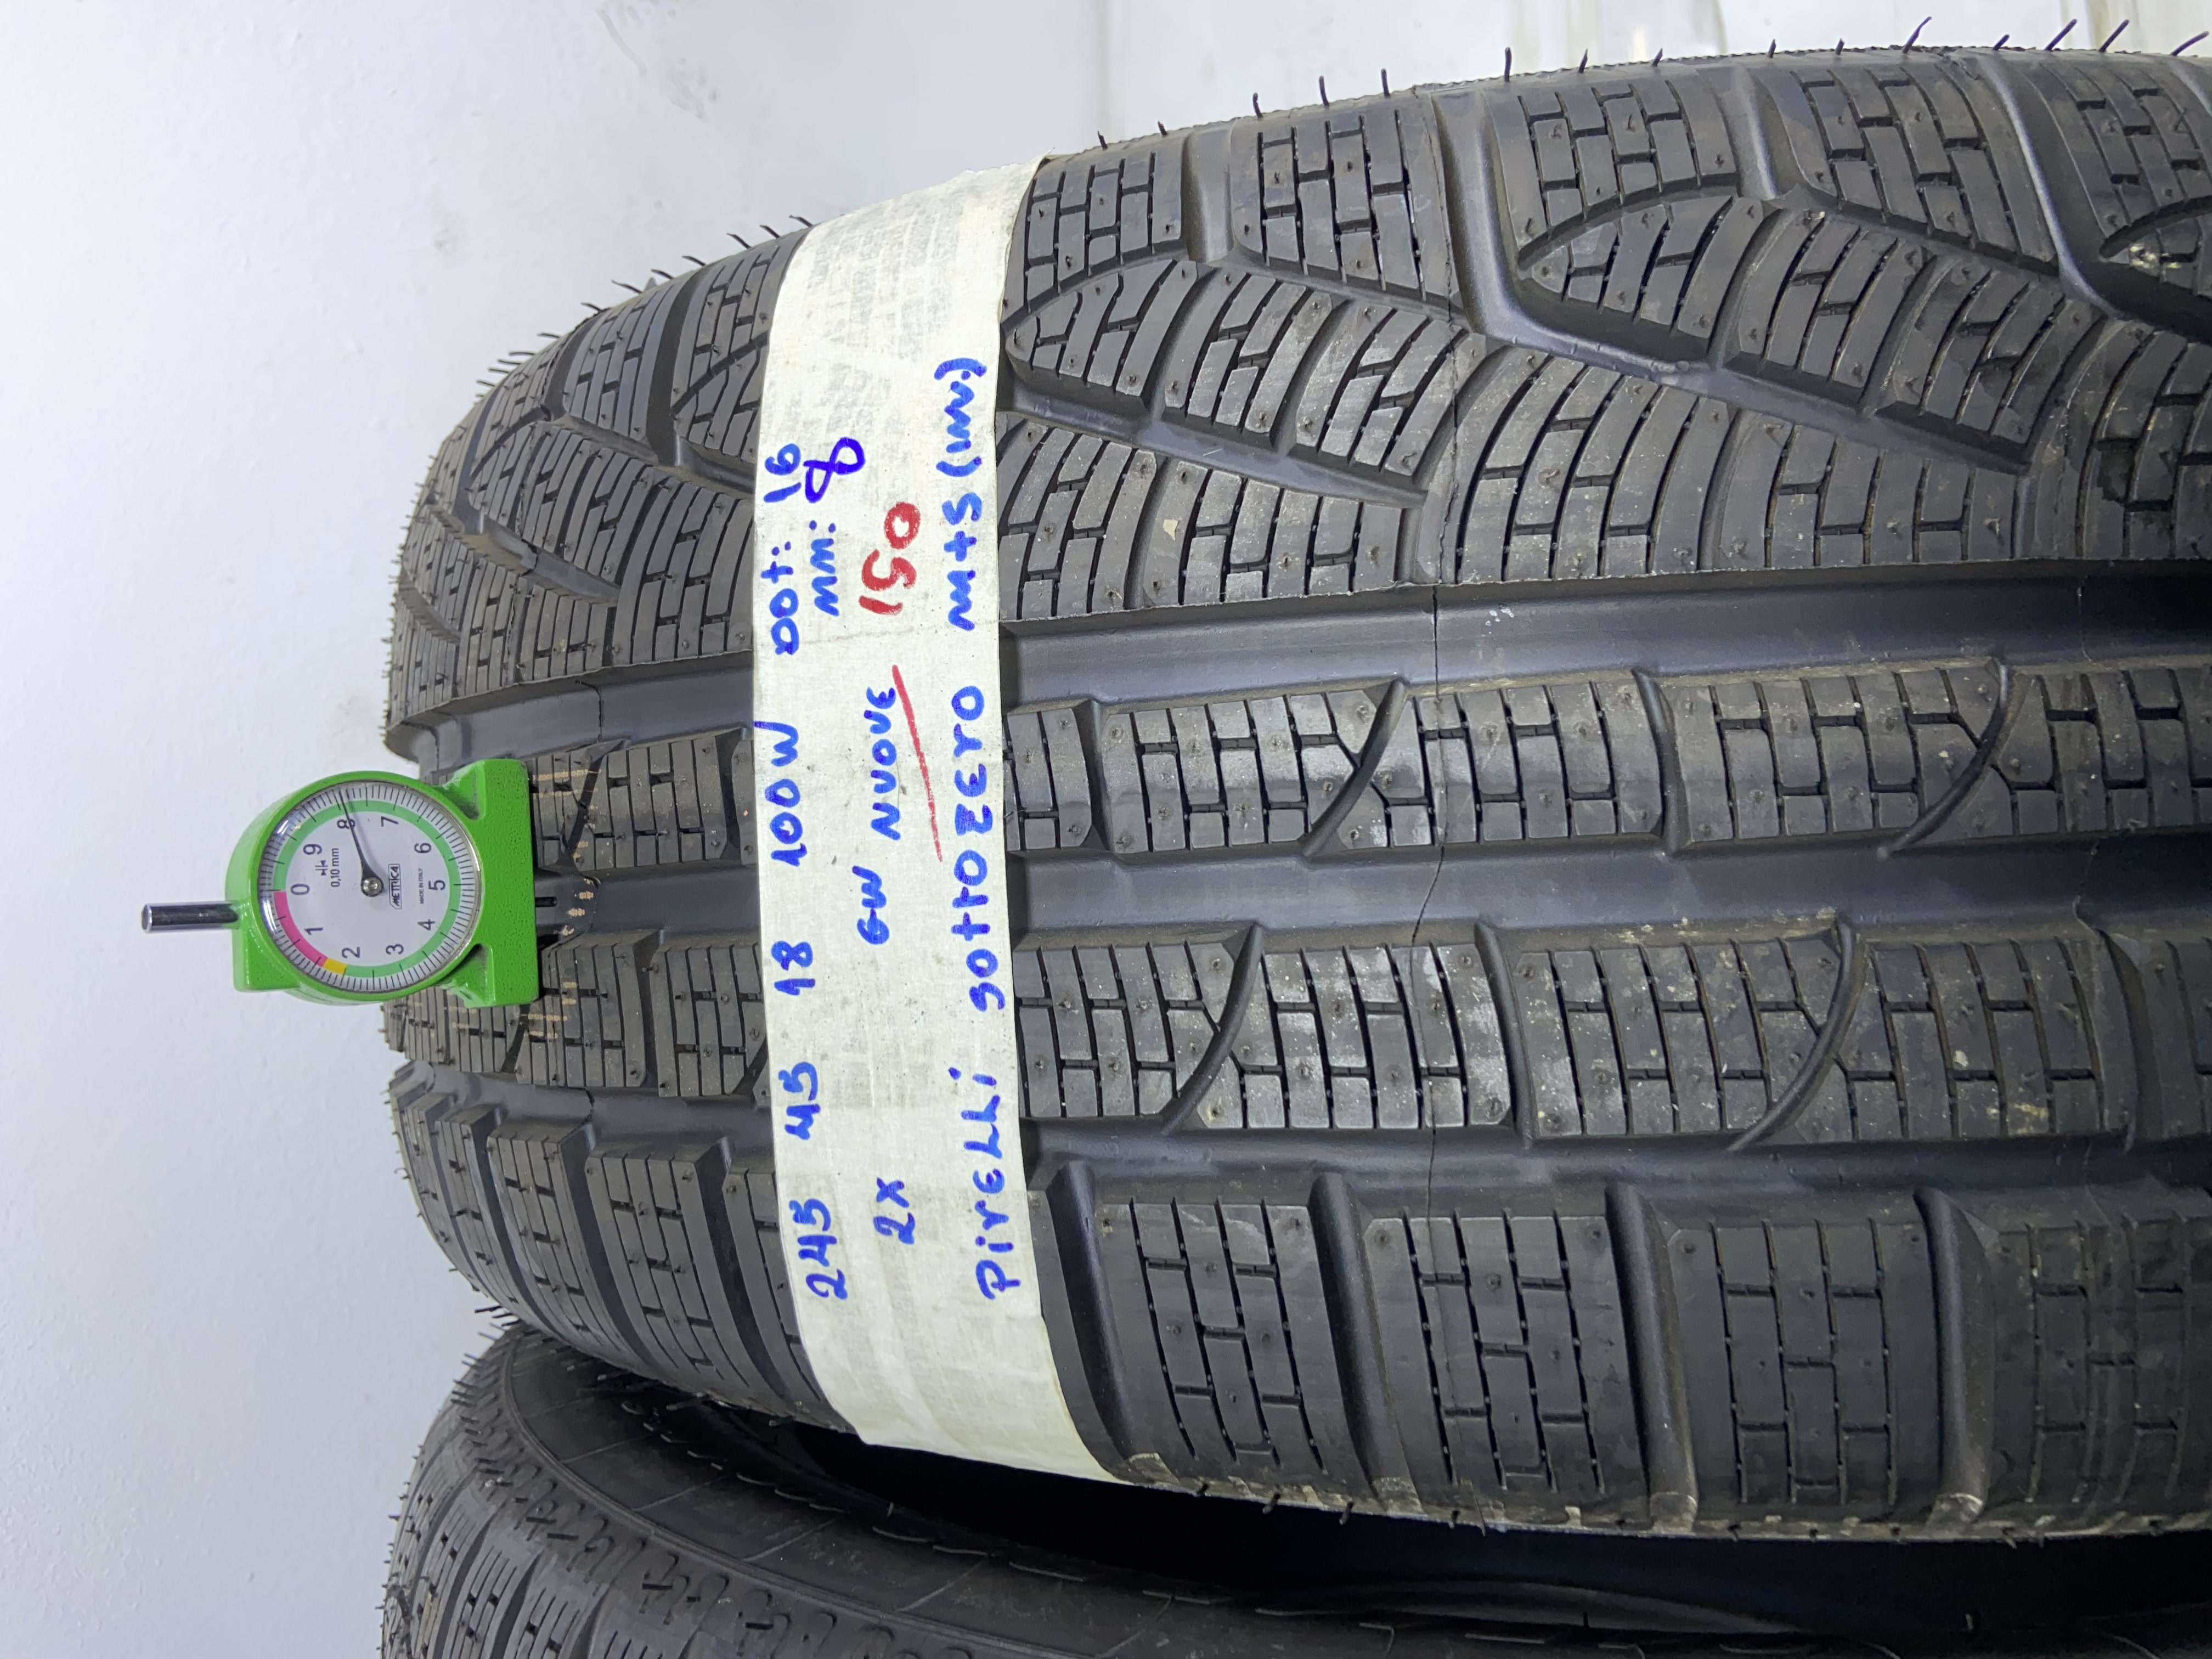 245 45 18 100W DOT: 16
mm: 8
2x GW NUOVE 150
PirELLi SottoZEro M+S (inv.)
0
1
2
3
4
5
6
7
8
9
0,10 mm
METRICA
MADE IN ITALY